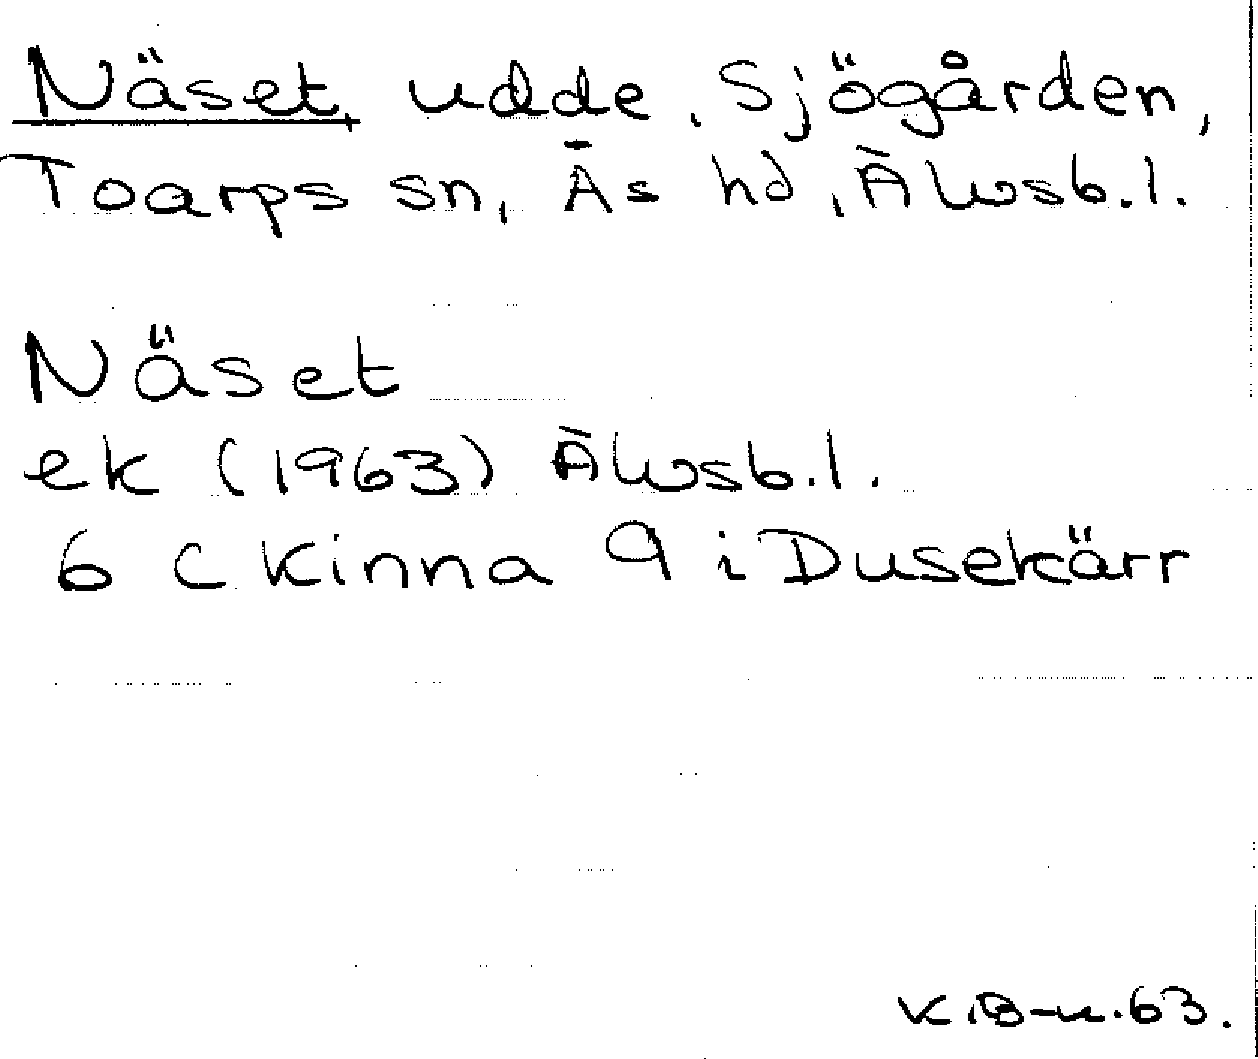 Näset, udde, Sjögården,
Toarps sn, Äs hd, Älvsb.l.
Näset
ek (1963) Älvsb.l.
6 C Kinna 9 i Dusekärr
K.B-n.63.